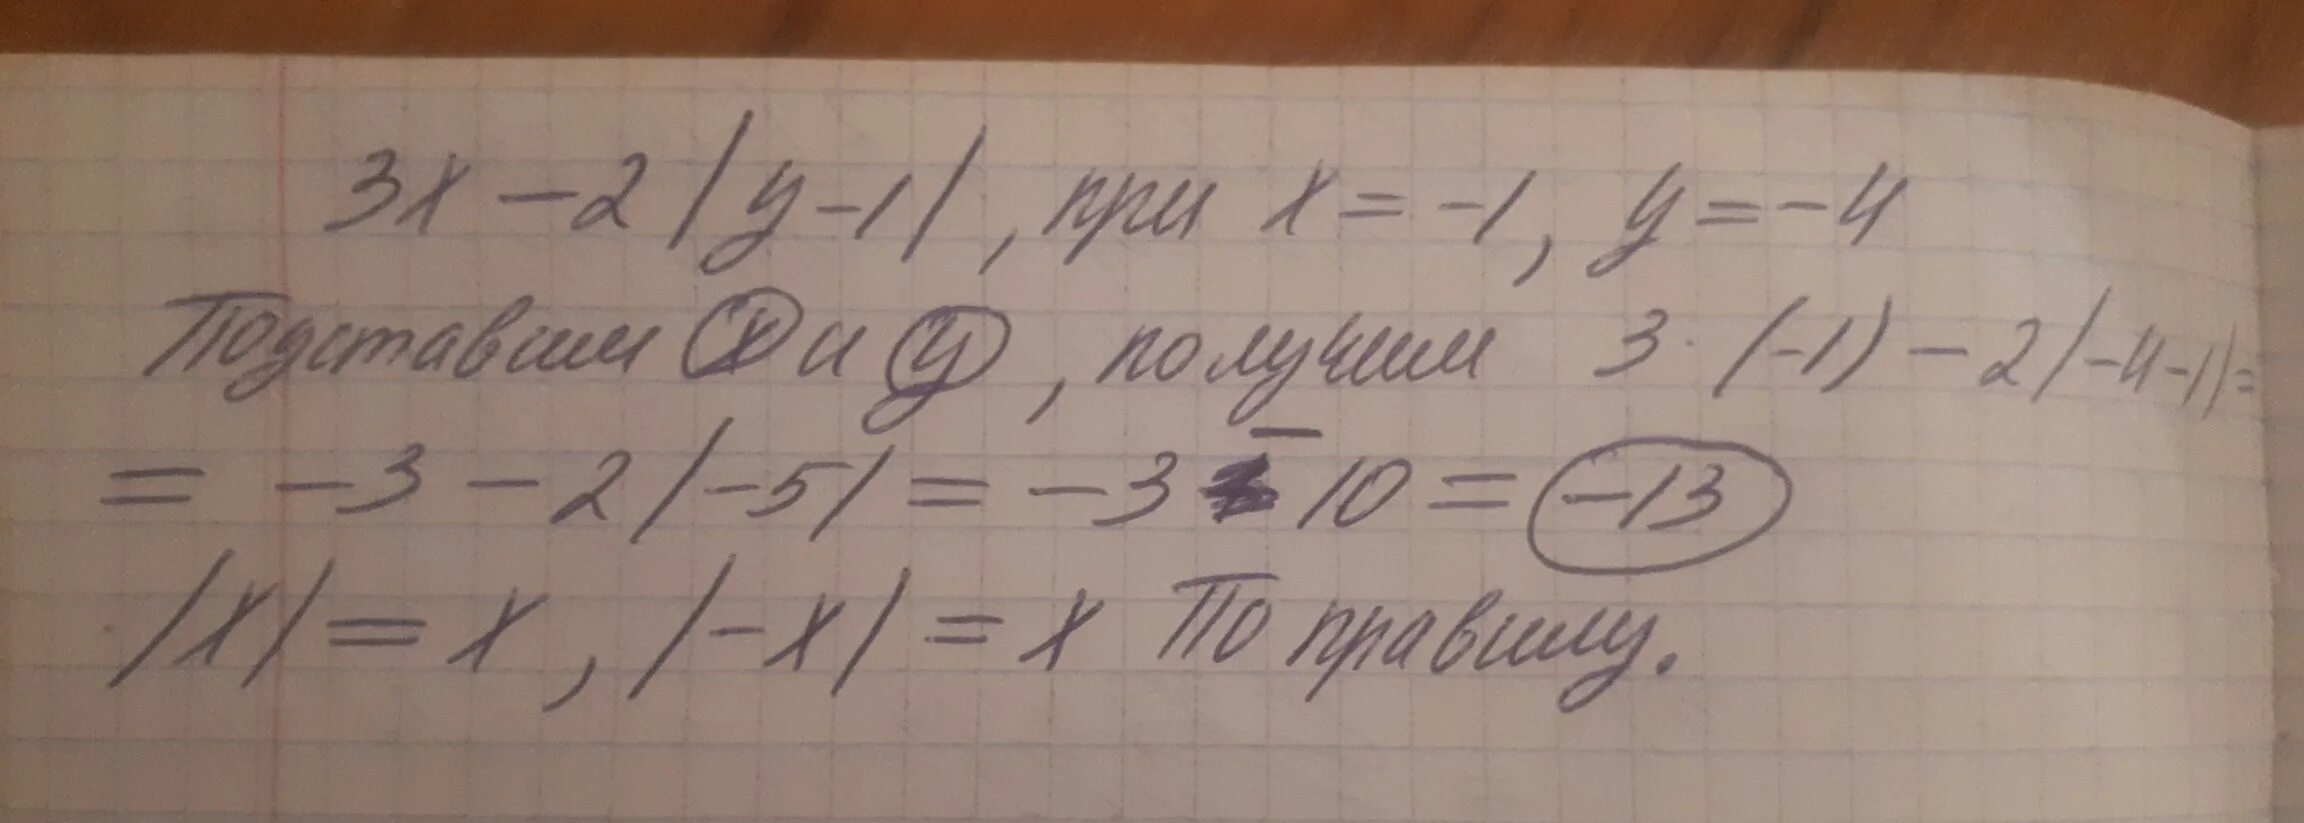 3x - 2|y-1|, при x = -1, y = -4
Подставим x и y, получим 3 · (-1) - 2|-4-1| =
= -3 - 2|-5| = -3 - 10 = -13
|x| = x, |-x| = x По правилу.